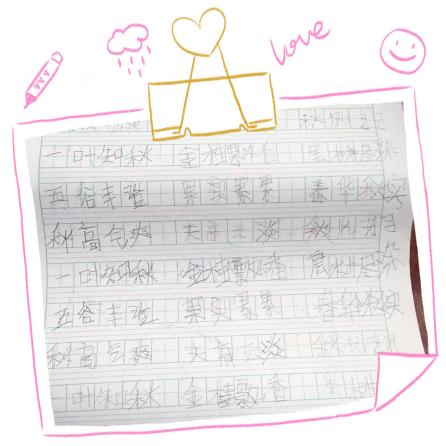 love
一叶知秋 金桂飘香
五谷丰登 果实累累 春华秋实
秋高气爽 天高云淡
一叶知秋 金桂飘香 层林尽染
五谷丰登 果实累累 春华秋实
秋高气爽 天高云淡
一叶知秋 金桂飘香